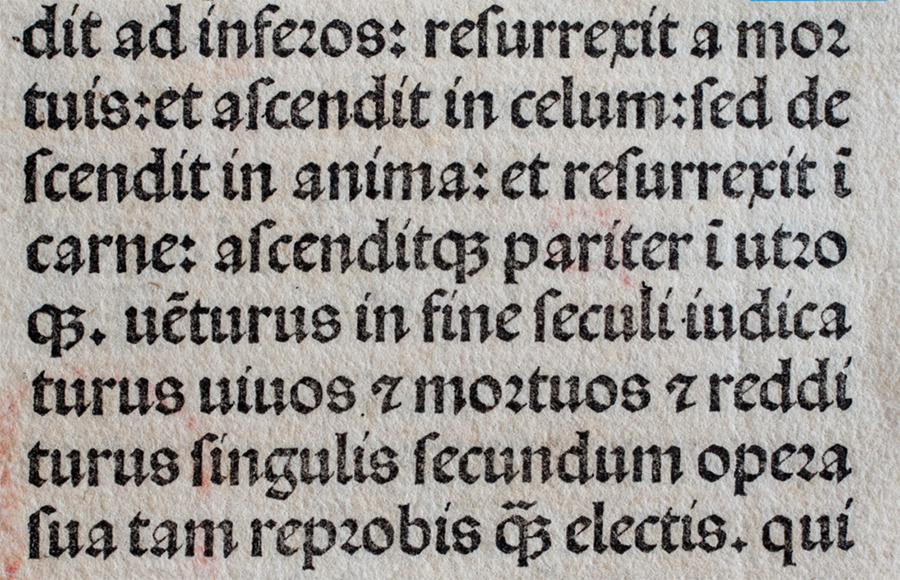 dit ad inferos: reſurrexit a moꝛ
tuis:et aſcendit in celum:ſed de
ſcendit in anima: et reſurrexit ī
carne: aſcenditqꝫ pariter ī utꝛo
qꝫ. uēturus in fine ſeculi iudica
turus uiuos ⁊ moꝛtuos ⁊ reddi
turus ſingulis ſecundum opeꝛa
ſua tam repꝛobis q̄ꝫ electis. qui